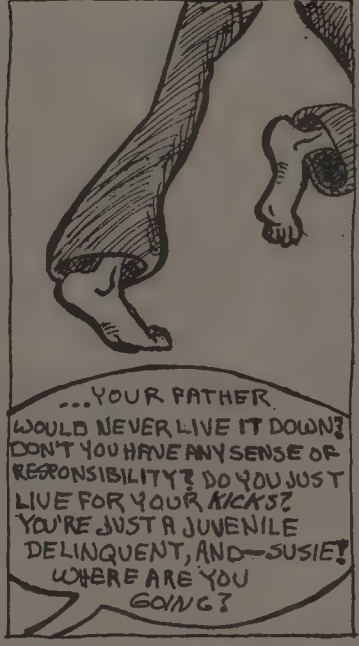 ...YOUR FATHER
WOULD NEVER LIVE IT DOWN?
DON'T YOU HAVE ANY SENSE OF
RESPONSIBILITY? DO YOU JUST
LIVE FOR YOUR KICKS?
YOU'RE JUST A JUVENILE
DELINQUENT, AND—SUSIE!
WHERE ARE YOU
GOING?